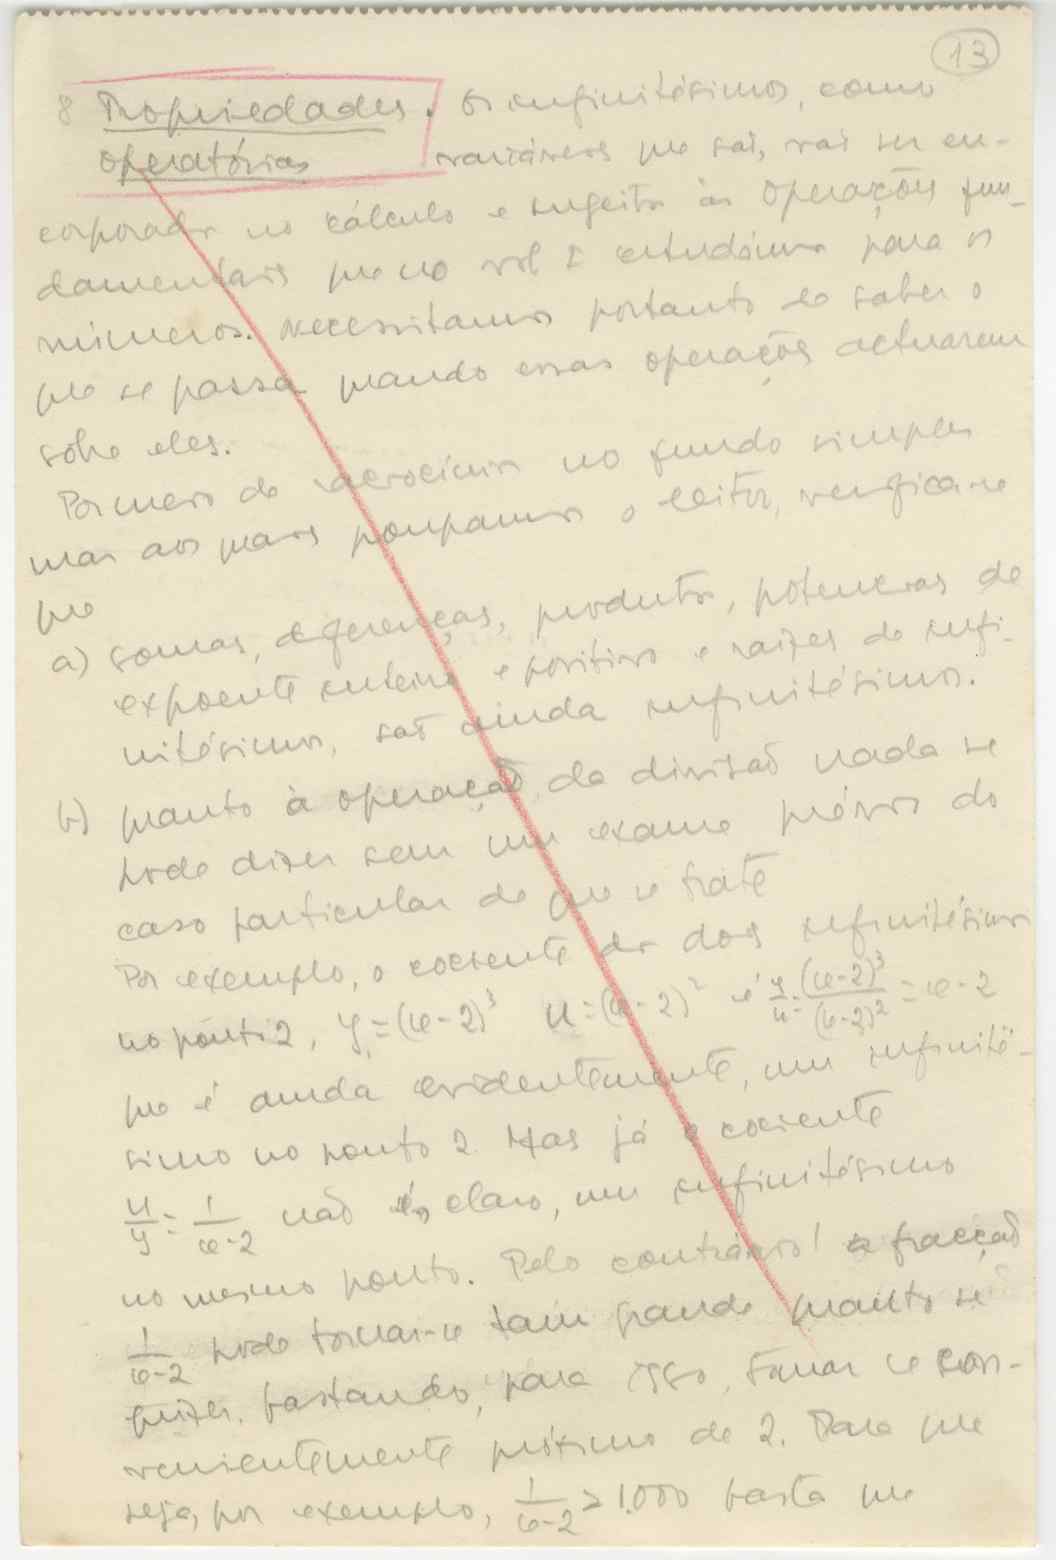 13
8 Propriedades. Os infinitésimos, como
operatórias variáveis que são, vão ser en-
corporados no cálculo e sugeitos às operações fun-
damentais que no vol I estudámos para os
números. Necessitamos portanto de saber o
que se passa quando essas operações actuarem
sôbre eles.
Por meio de raciocínios no fundo simples
mas aos quais poupamos o leitor, verifica-se
que
a) somas, diferenças, produtos, potencias de
expoente inteiro e positivo e raizes de infi-
nitésimos, são ainda infinitésimos.
b) quanto à operação da divisão nada se
pode dizer sem um exame prévio do
caso particular de que se trate
Por exemplo, o cociente de dois infinitésimos
no ponto 2, y=(x-2)³ u=(x-2)² é y/u=(x-2)³/(x-2)²=x-2
que é ainda evidentemente, um infinité-
simo no ponto 2. Mas já o cociente
u/y=1/(x-2) não é, claro, um infinitésimo
no mesmo ponto. Pelo contrário! a fracção
1/(x-2) pode tornar-se tam grande quanto se
quizer, bastando, para isso, tomar x con-
venientemente próximo de 2. Para que
seja, por exemplo, 1/(x-2) > 1.000 basta que